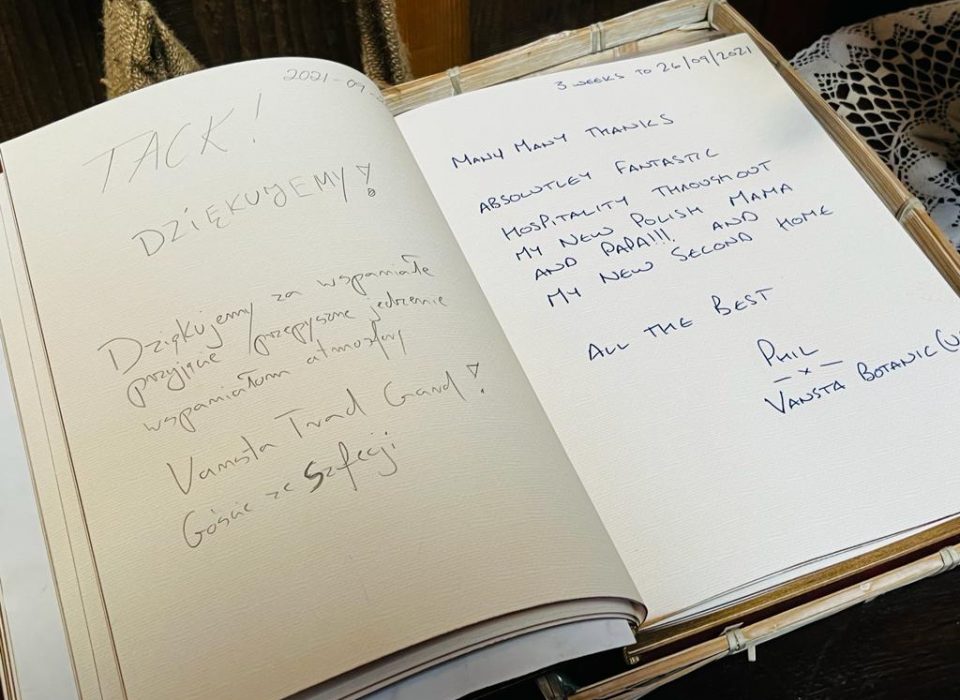 2021-09
TACK!
DZIĘKUJEMY!
Dziękujemy za wspaniałe
przyjęcie przepyszne jedzenie
wspaniałom atmosfery
Vansta Trad Gard!
Goście ze Szfecji
3 WEEKS TO 26/09/2021
MANY MANY THANKS
ABSOLUTLEY FANTASTIC
HOSPITALITY THROUGHOUT
MY NEW POLISH MAMA
AND PAPA!!! AND
MY NEW SECOND HOME
ALL THE BEST
PHIL
– x –
VANSTA BOTANIC (U